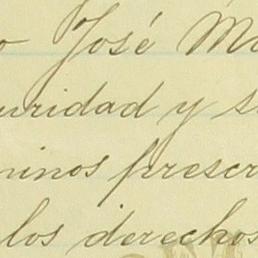 o José Ma
uridad y s
minos prescr
los derechos